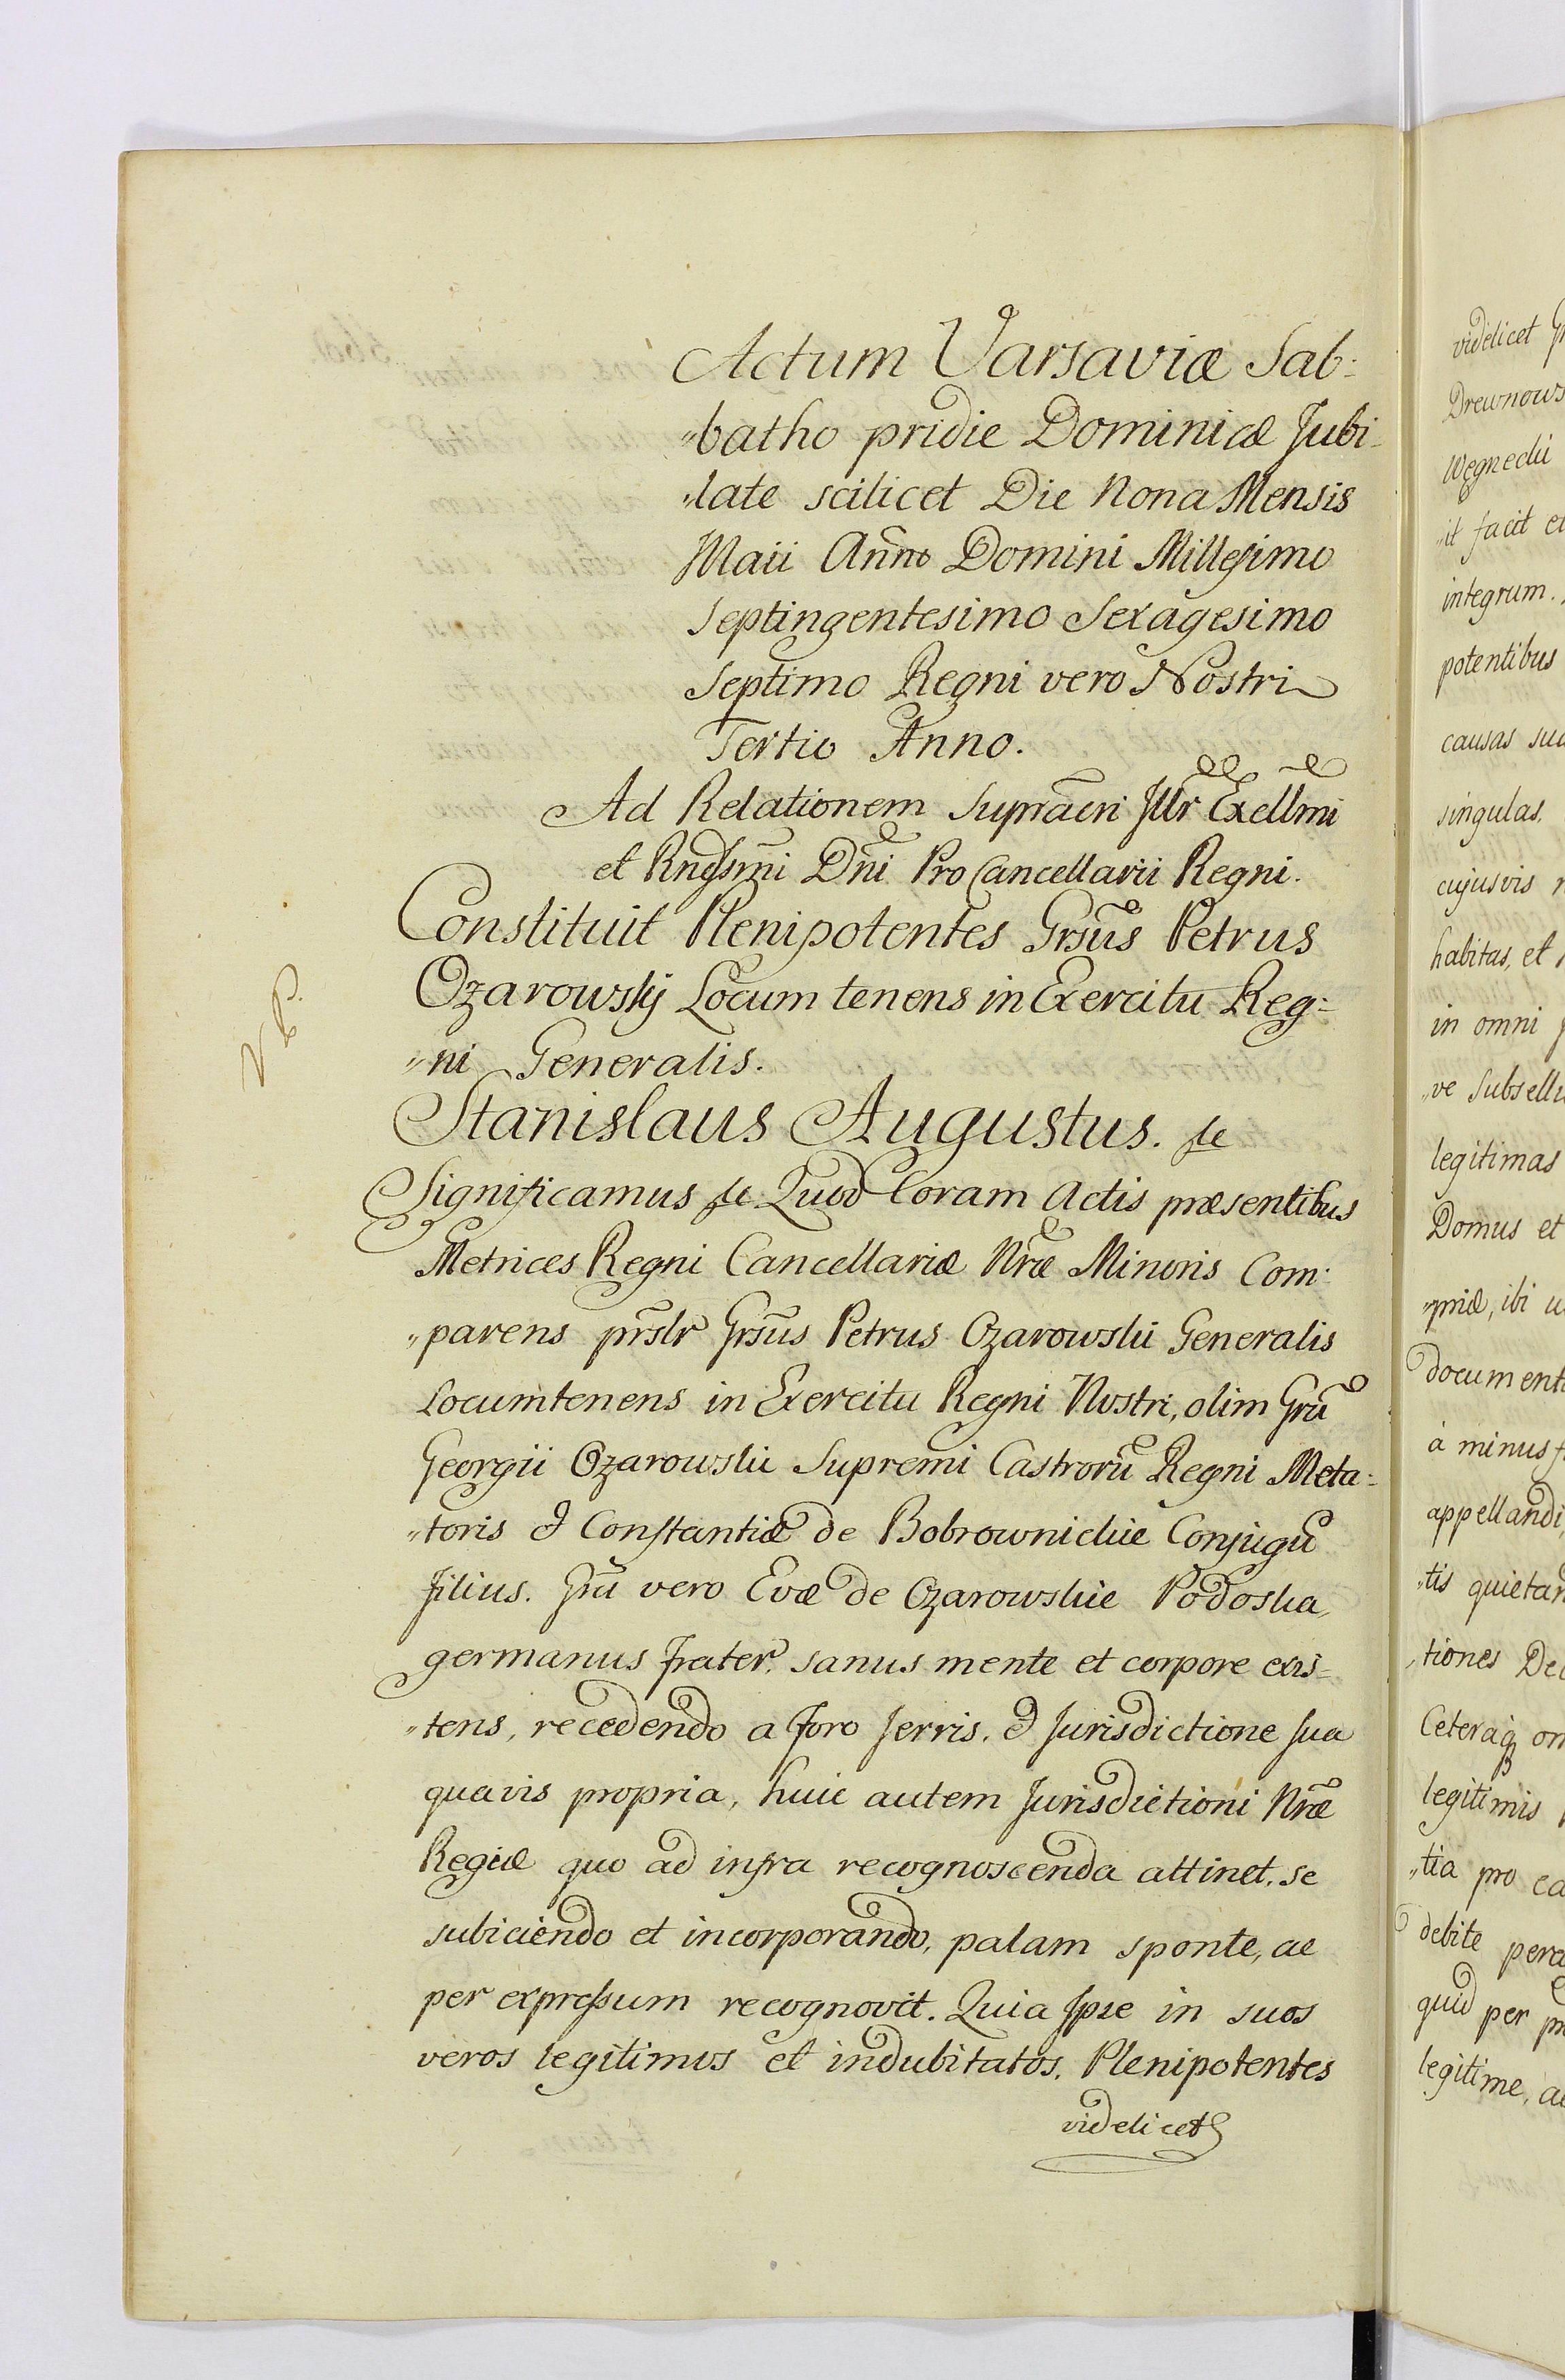 Actum Varsaviæ Sab:
"batho pridie Dominicæ Jubi-
"late scilicet Die Nona Mensis
Maii Anno Domini Millesimo
Septingentesimo Sexagesimo
Septimo Regni vero Nostri
Tertio Anno.
Ad Relationem Supracri Jllr Exellmi
et Rndssmi Dni ProCancellarii Regni.
Constituit Plenipotentes Grsus Petrus
Ozarowskÿ Locum tenens in Exercitu Reg=
"ni Generalis.
N P.
Stanislaus Augustus. &c
Significamus &c Quod Coram Actis præsentibus
Metrices Regni Cancellariæ Nræ Minoris Com:
"parens prslr Grsus Petrus Ozarowski Generalis
Locumtenens in Exercitu Regni Nostri, olim Gru
Georgii Ozarowskii Supremi Castroru Regni Meta=
"toris & Constantiæ de Bobrownickie Conjugu
filius. Gru vero Evæ de Ozarowskie Podoska,
germanus frater, sanus mente et corpore exis=
"tens, recedendo a foro Terris. & Jurisdictione sua
quavis propria, huic autem Jurisdictioni Nræ
Regiæ quo ad infra recognoscenda attinet. se
subiciendo et incorporando, palam sponte, ac
per expressum recognovit. Quia Jpse in suos
veros legitimos et indubitatos. Plenipotentes
videlicet
videlicet
Wegnecki
"it facit
integrum.
potentibus
causas
singulas.
cujusvis
habitas, et
in omni
"ve
legitimas
Domus et
ibi
à minus
appellandi
"tis
"tiones
Ceteraq
legitimis
"tia pro
debite
quid per
legitime,